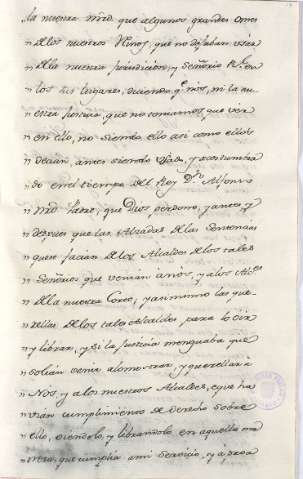 la nuestra mrd que algunos grandes omes
" de los nuestros Reinos, que no dejaban usar
" de la nuestra jurisdicion, y Señorio Rl en
" los sus lugares, diciendo qe nos, ni la nu-
" estra justicia, que no teniamos que ver
" en ello, no siendo ello asi como ellos
" decian, antes siendo usado, y acostumbra
" do en el tiempo del Rey Dn Alfonso
" mio Padre, que Dios perdone, y antes, y
" despues que las Alzadas de las Sentencias
" que facian de los Alcaldes de los tales
" Señorios que venian a nos, y a los Alces
" de la nuestra Corte, y asimismo las que-
" rellas de los tales Alcaldes para lo oir
" y librar, y si la Justicia menguaba que
" solian venir a lo mostrar, y querellar a
" Nos, y a los nuestros Alcaldes, e que ha
" vian cumplimiento de derecho sobre
" ello, oiendolo, y librandolo en aquella ma
" nera, que cumplia a mi servicio, y a proa